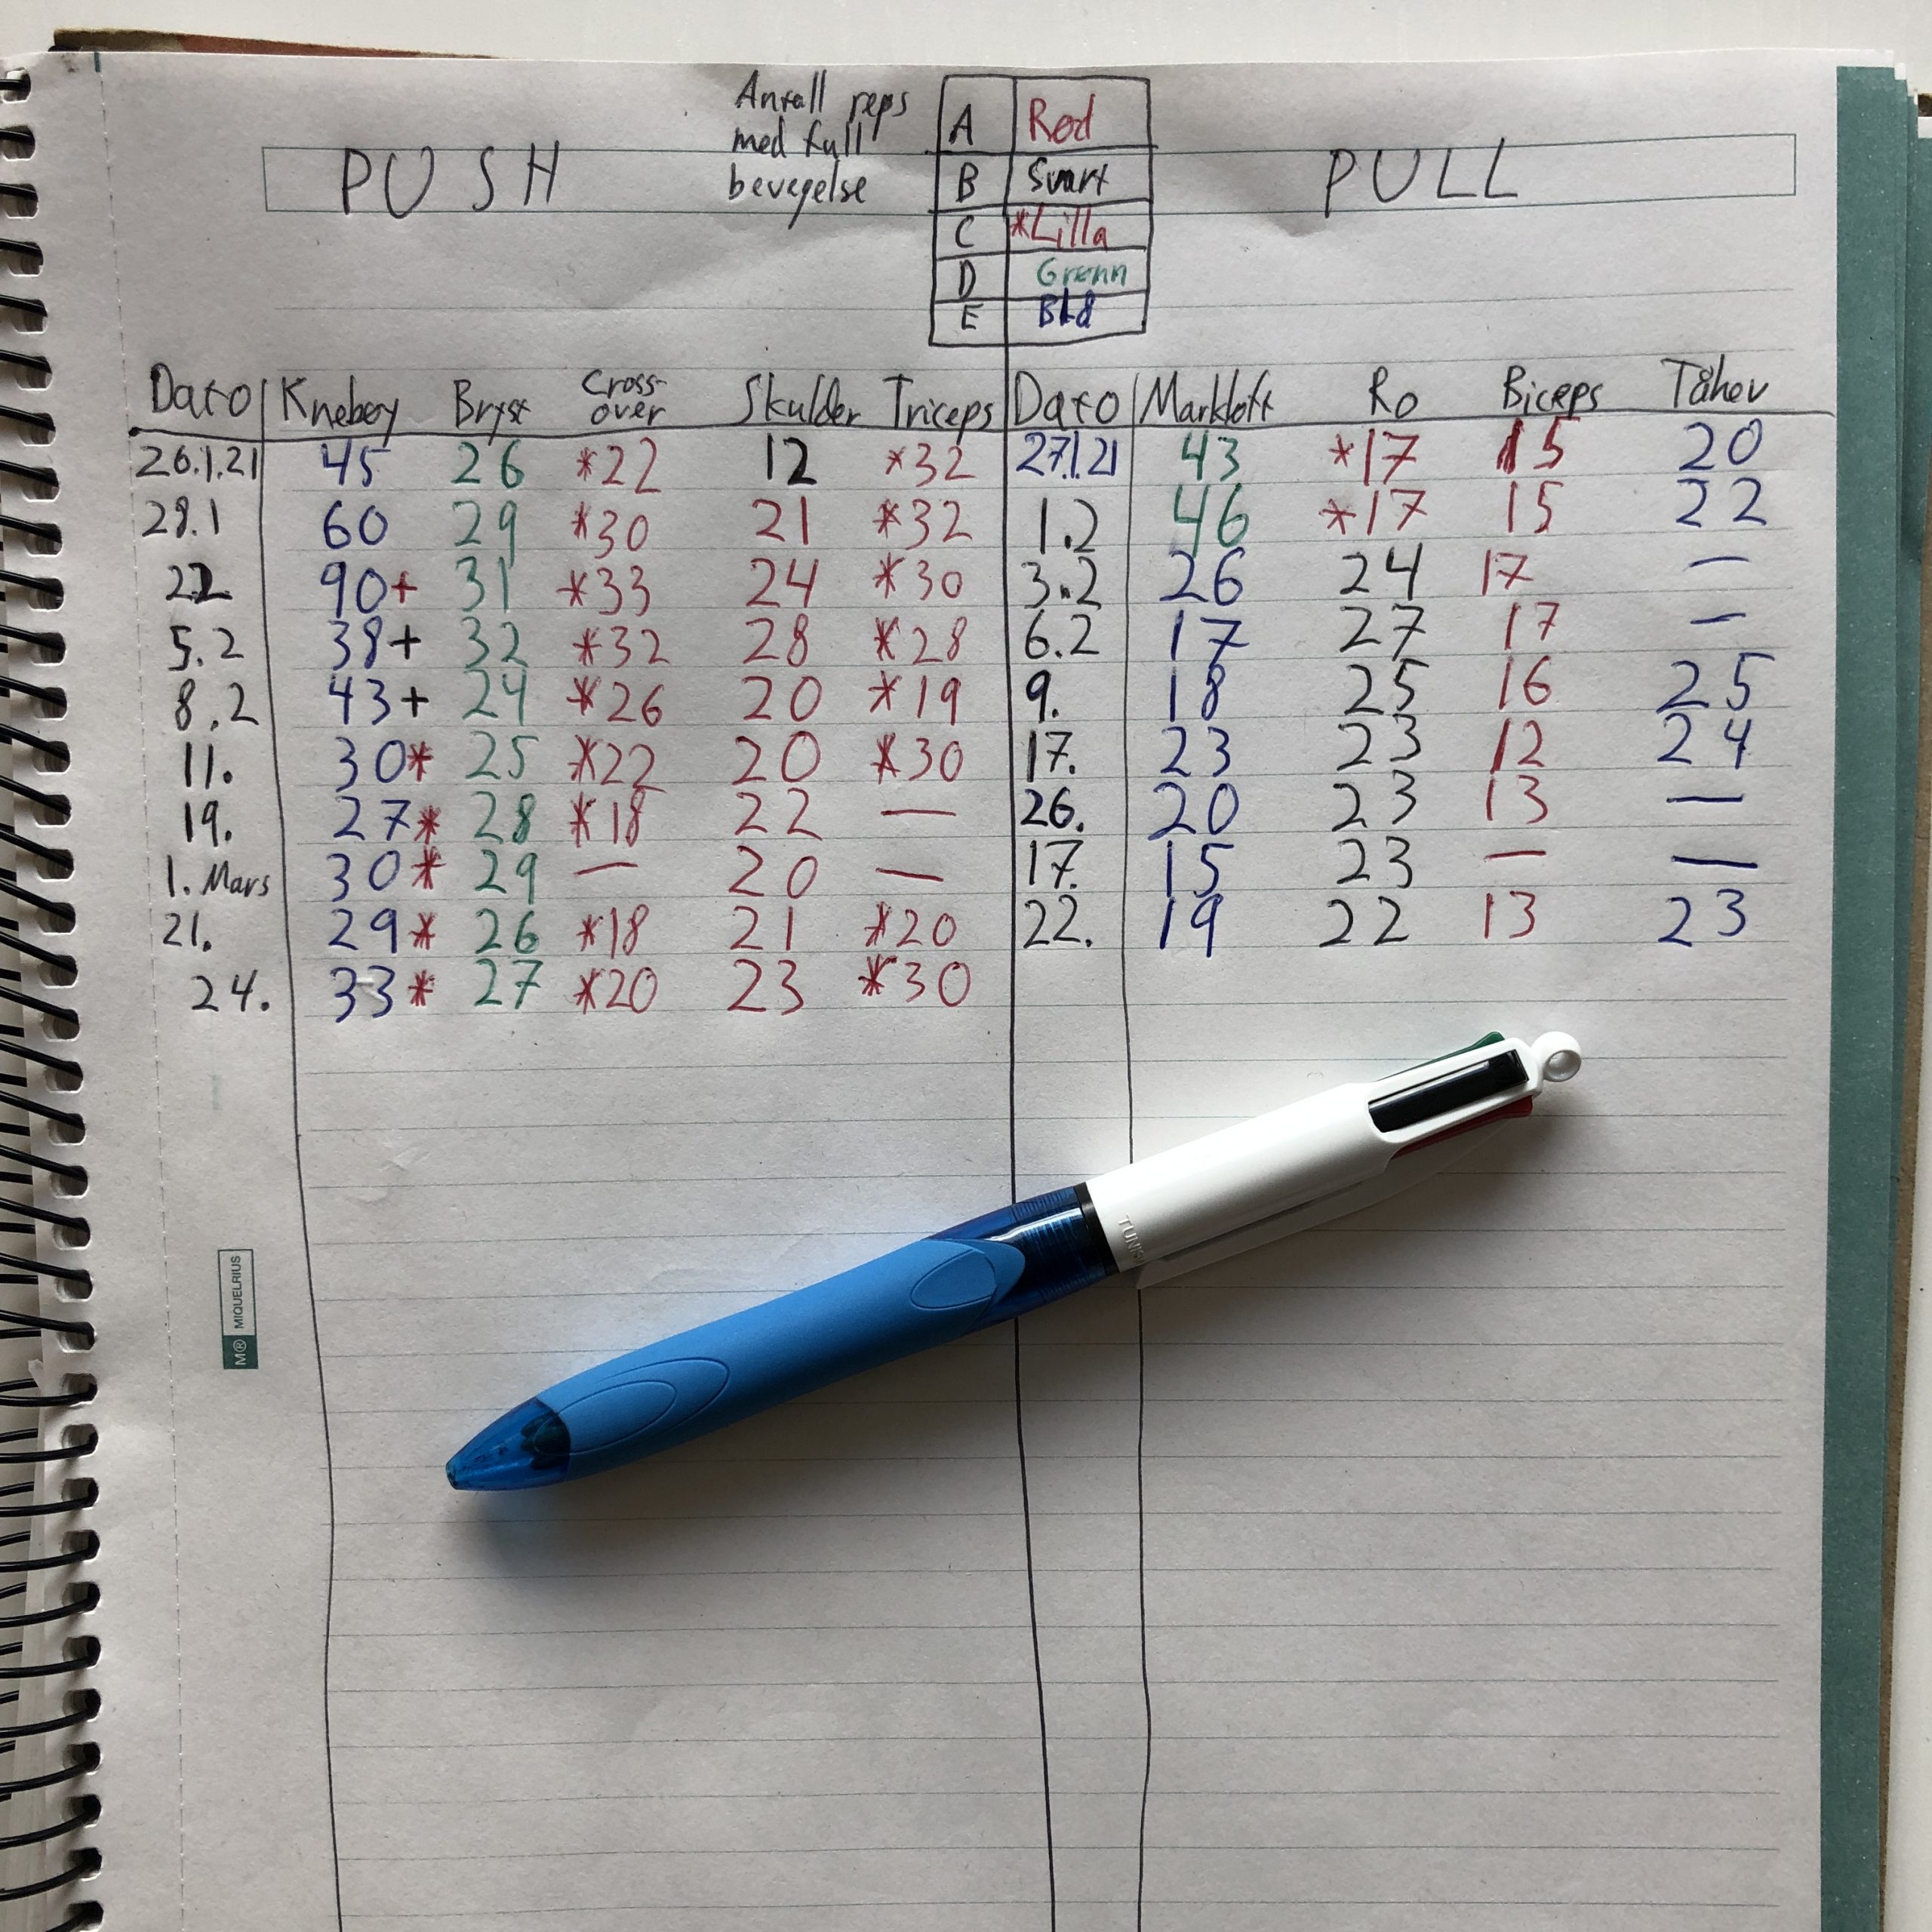 Antall reps
med full
bevegelse
PUSH
A Rød
B Svart
C *Lilla
D Grønn
E Blå
PULL
Dato Knebøy Bryst Cross-over Skulder Triceps Dato Markløft Ro Biceps Tåhev
26.1.21 45 26 *22 12 *32 27.1.21 43 *17 15 20
28.1 60 29 *30 21 *32 1.2 46 *17 15 22
2.2 90+ 31 *33 24 *30 3.2 26 24 17 —
5.2 38+ 32 *32 28 *28 6.2 17 27 17 —
8.2 43+ 24 *26 20 *19 9. 18 25 16 25
11. 30* 25 *22 20 *30 17. 23 23 12 24
19. 27* 28 *18 22 — 26. 20 23 13 —
1. Mars 30* 29 — 20 — 17. 15 23 — —
21. 29* 26 *18 21 *20 22. 19 22 13 23
24. 33* 27 *20 23 *30
M® MIQUELRIUS